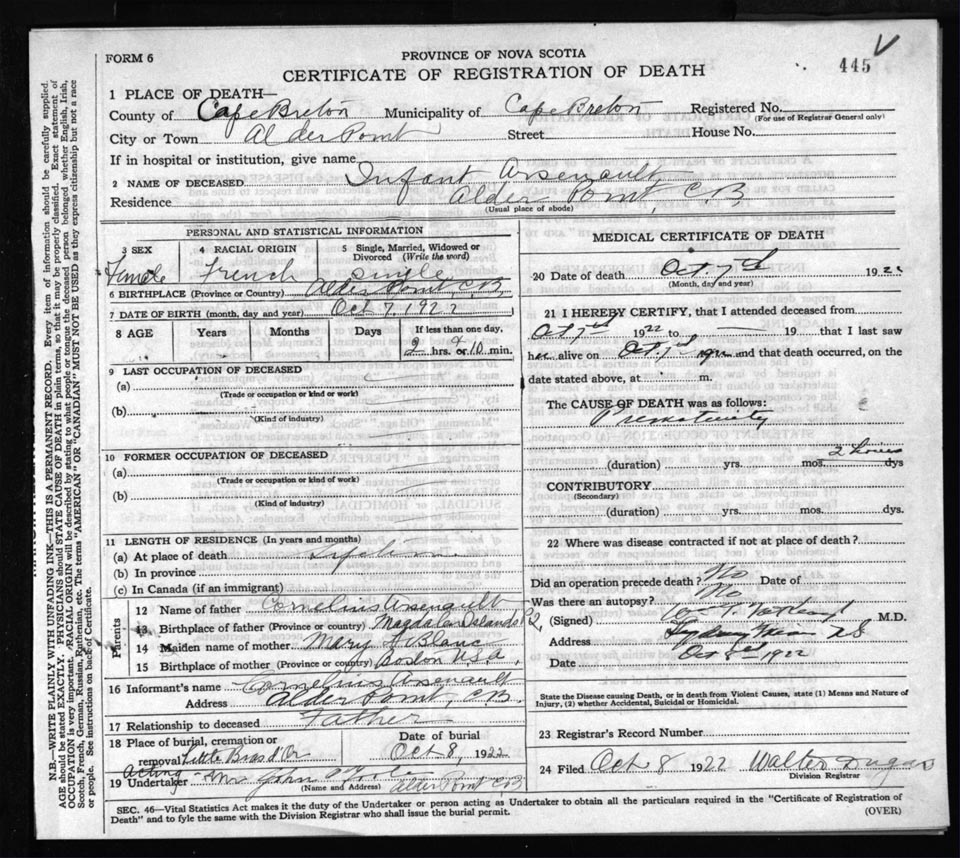 FORM 6
PROVINCE OF NOVA SCOTIA
CERTIFICATE OF REGISTRATION OF DEATH
445
1 PLACE OF DEATH—
County of Cape Breton Municipality of Cape Breton Registered No.
(For use of Registrar General only)
City or Town Alder Point Street House No.
If in hospital or institution, give name
2 NAME OF DECEASED Infant Arsenault
Residence Alder Point, C.B
(Usual place of abode)
PERSONAL AND STATISTICAL INFORMATION
3 SEX 4 RACIAL ORIGIN 5 Single, Married, Widowed or Divorced (Write the word)
Female French single
6 BIRTHPLACE (Province or Country) Alder Point, C.B.
7 DATE OF BIRTH (month, day and year) Oct 7, 1922
8 AGE Years Months Days If less than one day,
2 hrs. or 10 min.
9 LAST OCCUPATION OF DECEASED
(a)
(Trade or occupation or kind of work)
(b)
(Kind of industry)
10 FORMER OCCUPATION OF DECEASED
(a)
(Trade or occupation or kind of work)
(b)
(Kind of industry)
11 LENGTH OF RESIDENCE (In years and months)
(a) At place of death
(b) In province
(c) In Canada (if an immigrant)
Parents
12 Name of father Cornelius Arsenault
13 Birthplace of father (Province or country) Magdalen Islands P.Q.
14 Maiden name of mother Mary A Blanc
15 Birthplace of mother (Province or country) Boston U.S.A.
16 Informant's name Cornelius Arsenault
Address Alder Point, C.B.
17 Relationship to deceased Father
18 Place of burial, cremation or removal Little Bras d'Or Date of burial Oct 8, 1922
acting
19 Undertaker Mrs John Alder Point C.B
(Name and Address)
MEDICAL CERTIFICATE OF DEATH
20 Date of death Oct. 7th 1922
(Month, day and year)
21 I HEREBY CERTIFY, that I attended deceased from
Oct 7th 1922 to — 19 that I last saw
her alive on Oct 7th 1922 and that death occurred, on the
date stated above, at m.
The CAUSE OF DEATH was as follows:
Prematurity
2 hours
(duration) yrs. mos. dys
CONTRIBUTORY
(Secondary)
(duration) yrs. mos. dys.
22 Where was disease contracted if not at place of death?
Did an operation precede death? No Date of
Was there an autopsy? No
(Signed) M.D.
Address Sydney Mines N.S
Date Oct 8th 1922
State the Disease causing Death, or in death from Violent Causes, state (1) Means and Nature of
Injury, (2) whether Accidental, Suicidal or Homicidal.
23 Registrar's Record Number
24 Filed Oct 8 1922 Walter Dugas
Division Registrar
SEC. 46—Vital Statistics Act makes it the duty of the Undertaker or person acting as Undertaker to obtain all the particulars required in the "Certificate of Registration of
Death" and to fyle the same with the Division Registrar who shall issue the burial permit.
(OVER)
N.B.—WRITE PLAINLY WITH UNFADING INK—THIS IS A PERMANENT RECORD. Every item of information should be carefully supplied.
AGE should be stated EXACTLY. PHYSICIANS should STATE CAUSE OF DEATH in plain terms, so that it may be properly classified. Exact statement of
OCCUPATION is very important. RACIAL ORIGIN will be described by stating to what people or tongue the deceased person belonged whether English, Irish,
Scotch, French, German, Russian, Ruthenian, etc. The terms "AMERICAN" OR "CANADIAN" MUST NOT BE USED as they express citizenship but not a race
or people. See instructions on back of Certificate.